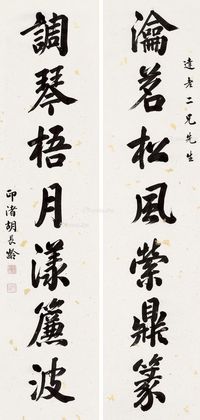 達老二兄先生
瀹茗松風縈鼎篆
調琴梧月漾簾波
印渚胡長齡